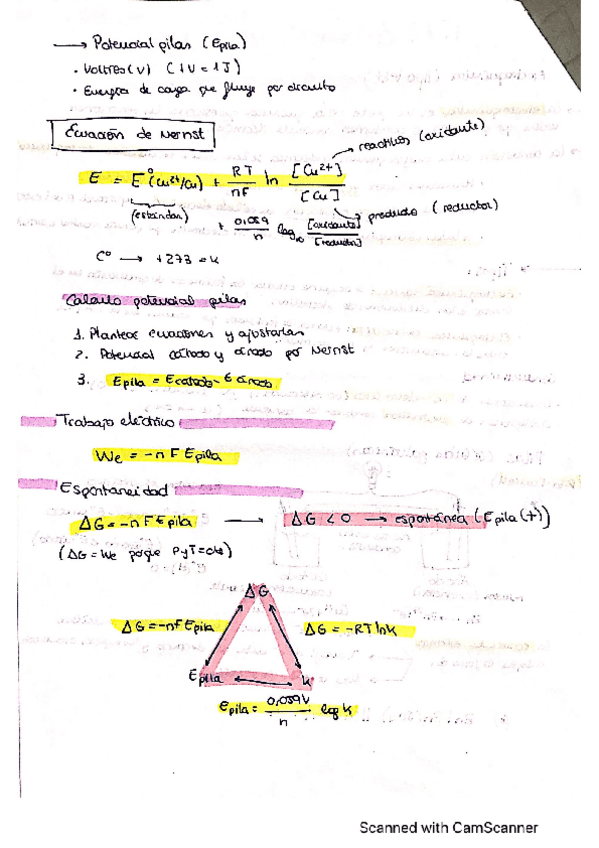 → Potencial pilas (Epila)
· Voltios (V) (1V = 1J)
· Energía de carga que fluye por circuito
Ecuación de Nernst
→ reactivos (oxidante)
E = E°(Cu²⁺/Cu) + RT/nF ln [Cu²⁺]/[Cu]
→ producto (reductor)
(estándar) + 0,059/n log₁₀ [oxidante]/[reductor]
C° → +273 = K
Cálculo potencial pilas
1. Plantear ecuaciones y ajustarlas
2. Potencial cátodo y ánodo por Nernst
3. Epila = Ecátodo - Eánodo
Trabajo eléctrico
We = -n F Epila
Espontaneidad
ΔG = -n F Epila → ΔG < 0 → espontánea (Epila (+))
(ΔG = We porque P y T = cte)
ΔG
ΔG = -nF Epila ΔG = -RT lnk
Epila k
Epila = 0,059V/n log k
Scanned with CamScanner